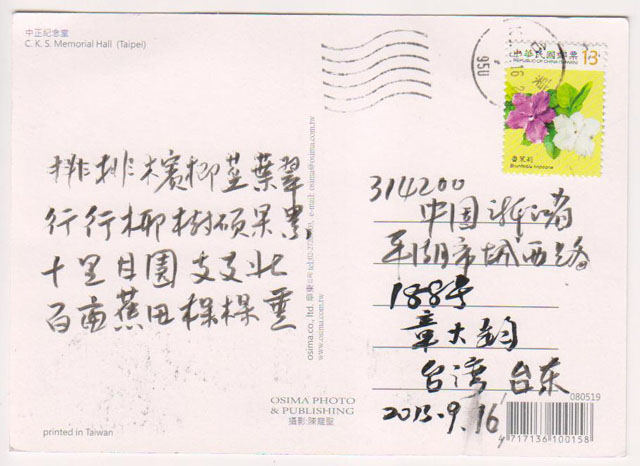 中正紀念堂
C. K. S. Memorial Hall (Taipei)
中華民國郵票 13
REPUBLIC OF CHINA (TAIWAN)
番茉莉
16
950
排排槟榔茎葉翠
行行椰树硕果累
十里目園支支
百亩蕉田棵棵垂
314200
中国浙江省
平湖市城西路
188号
章大钧
台湾 台东
2013.9.16
osima.co., ltd.
e-mail: osima@osima.com.tw
www.osima.com.tw
OSIMA PHOTO
& PUBLISHING
攝影:陳龍聖
printed in Taiwan
080519
4 717136 100158